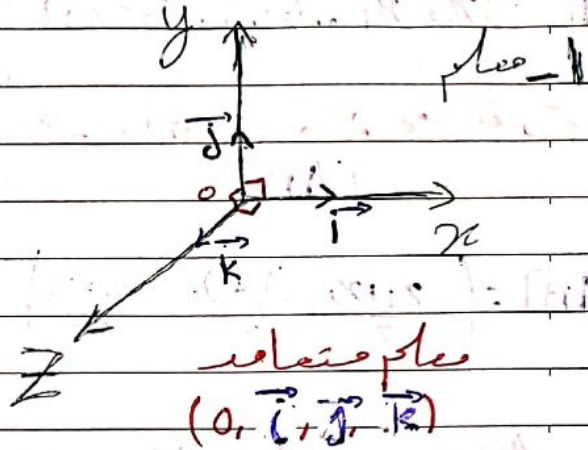 1_ معلم
y
j
o
i
x
k
Z
معلم متعامد
(0, i, j, k)